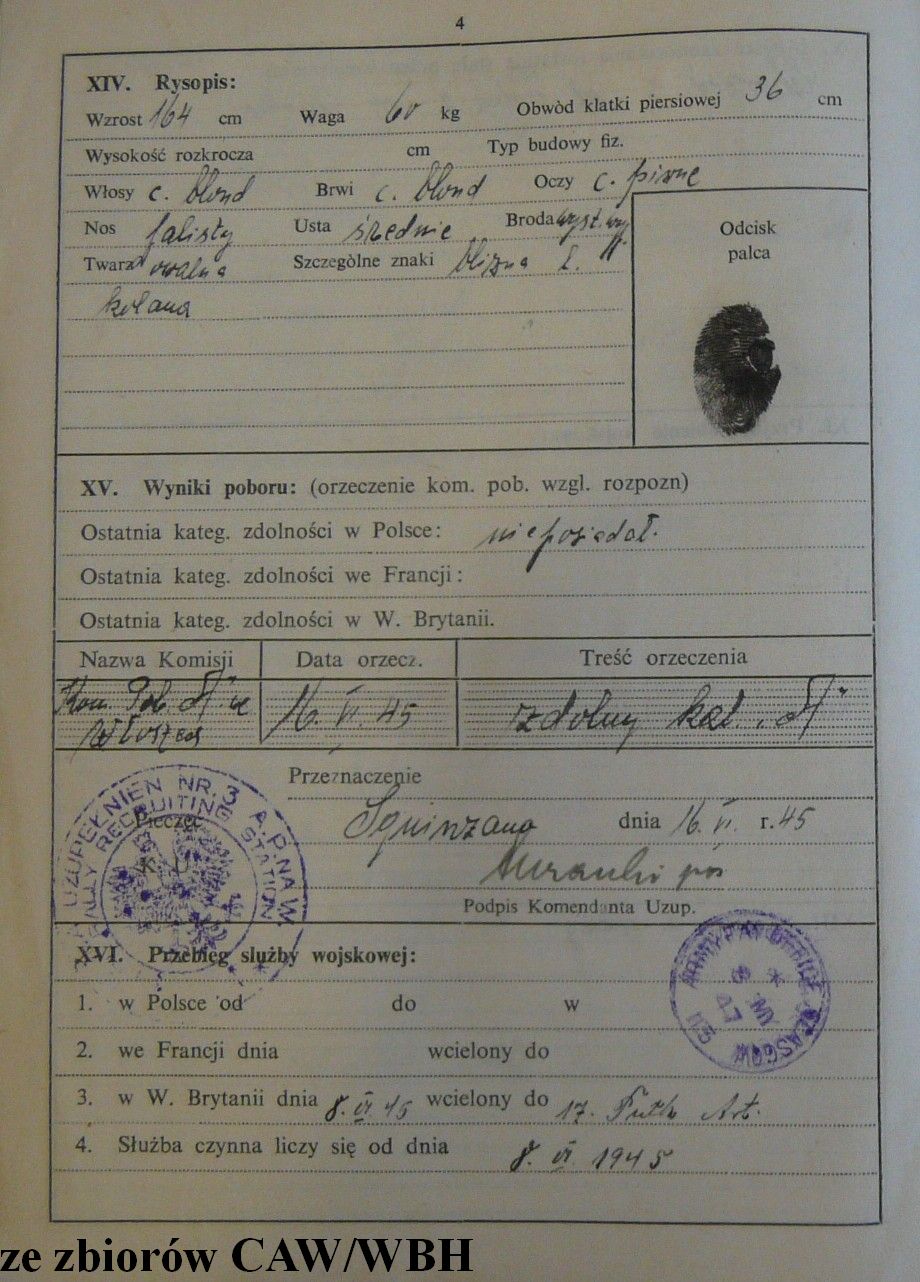 4
XIV. Rysopis:
Wzrost 164 cm Waga 60 kg Obwòd klatki piersiowej 36 cm
Wysokość rozkrocza cm Typ budowy fiz.
Włosy c. blond Brwi c. blond Oczy c. piwne
Nos falisty Usta średnie Broda
Twarz owalna Szczegòlne znaki blizna l.
kolana
Odcisk
palca
XV. Wyniki poboru: (orzeczenie kom. pob. wzgl. rozpozn)
Ostatnia kateg. zdolności w Polsce: nieposiadał.
Ostatnia kateg. zdolności we Francji:
Ostatnia kateg. zdolności w W. Brytanii.
Nazwa Komisji Data orzecz. Treść orzeczenia
Kom. Pob. "A" we 16. VI. 45 zdolny kat. "A"
Włoszech
Przeznaczenie
UZUPEŁNIEŃ NR. 3 A.P. NA W.
RECRUITING STATION
Pieczęć
K. U.
Squinzano dnia 16. VI. r. 45
Podpis Komendanta Uzup.
XVI. Przebieg służby wojskowej:
ARMY PAY OFFICE GLASGOW
1. w Polsce od do w
2. we Francji dnia wcielony do
3. w W. Brytanii dnia 8. VI 45 wcielony do 17. Art.
4. Służba czynna liczy się od dnia 8. VI. 1945
ze zbiorów CAW/WBH